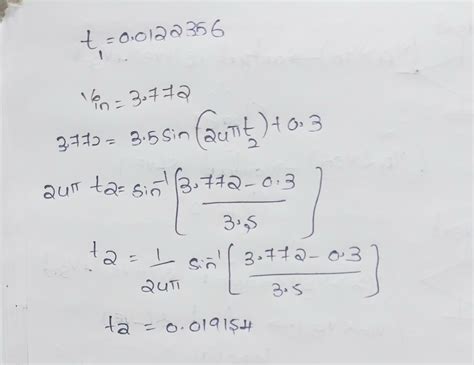 t₁ = 0.0122356
Vin = 3.772
3.772 = 3.5 sin(24π t₂) + 0.3
24π t₂ = sin⁻¹[(3.772 - 0.3)/3.5]
t₂ = 1/24π sin⁻¹[(3.772 - 0.3)/3.5]
t₂ = 0.019154